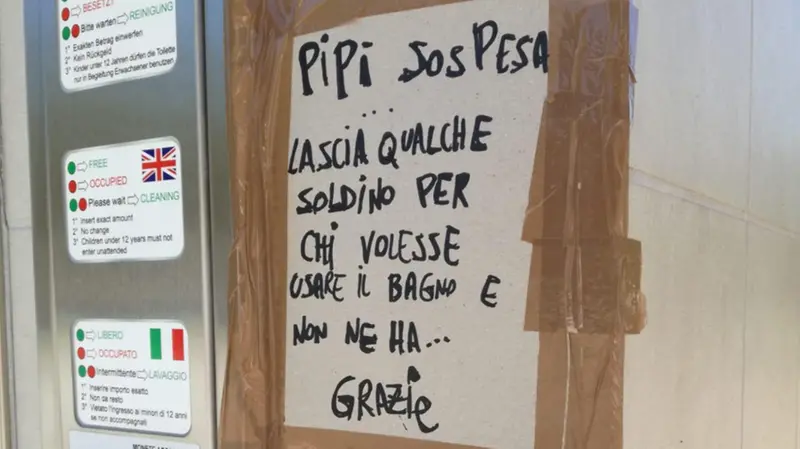 BESETZT
Bitte warten REINIGUNG
1° Exakten Betrag einwerfen
2° Kein Rückgeld
3° Kinder unter 12 Jahren dürfen die Toilette
nur in Begleitung Erwachsener benutzen
FREE
OCCUPIED
Please wait CLEANING
1° Insert exact amount
2° No change
3° Children under 12 years must not
enter unattended
LIBERO
OCCUPATO
Intermittente LAVAGGIO
1° Inserire importo esatto
2° Non da resto
3° Vietato l'ingresso ai minori di 12 anni
se non accompagnati
PiPi SOSPESA
...
LASCIA QUALCHE
SOLDINO PER
CHI VOLESSE
USARE IL BAGNO E
NON NE HA...
GRAZIE